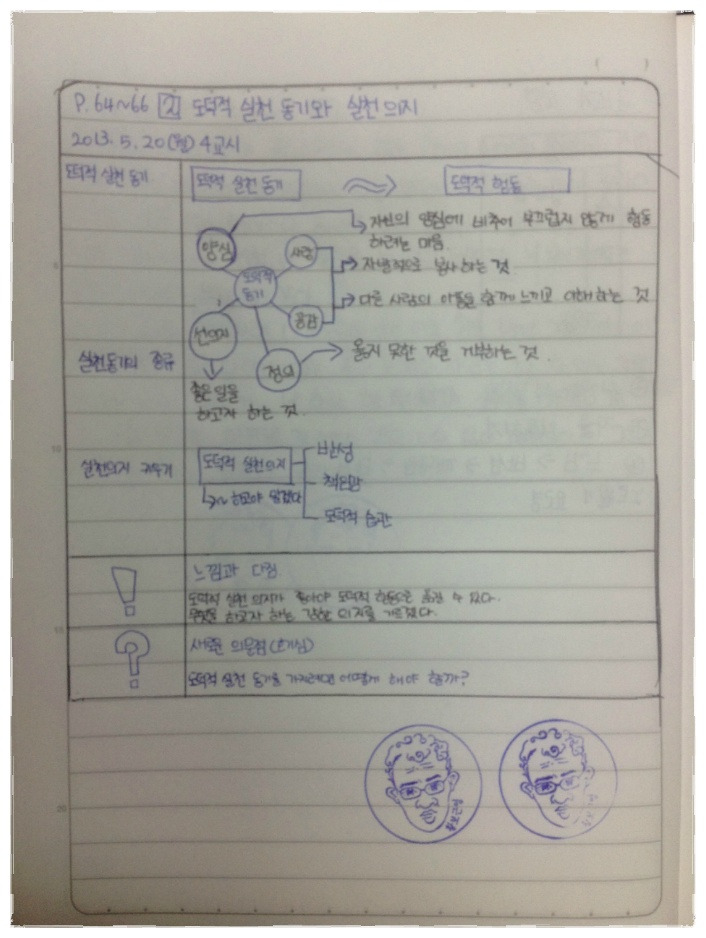 P.64~66 [2] 도덕적 실천 동기와 실천 의지
2013. 5. 20(월) 4교시
도덕적 실천 동기
도덕적 실천 동기
도덕적 행동
양심
→ 자신의 양심에 비추어 부끄럽지 않게 행동
하려는 마음.
사랑
→ 자발적으로 봉사하는 것
도덕적
동기
공감
→ 다른 사람의 아픔을 함께 느끼고 이해하는 것
선의지
정의
→ 옳지 못한 것을 거부하는 것.
좋은 일을
하고자 하는 것.
실천동기의 종류
실천의지 키우기
도덕적 실천의지
↳ ~하고야 말겠다
반성
책임감
도덕적 습관
!
느낌과 다짐
도덕적 실천 의지가 좋아야 도덕적 행동으로 옮길 수 있다.
무엇을 하고자 하는 강한 의지를 기르겠다.
?
새로운 의문점(호기심)
도덕적 실천 동기를 가지려면 어떻게 해야 할까?
5
10
15
20